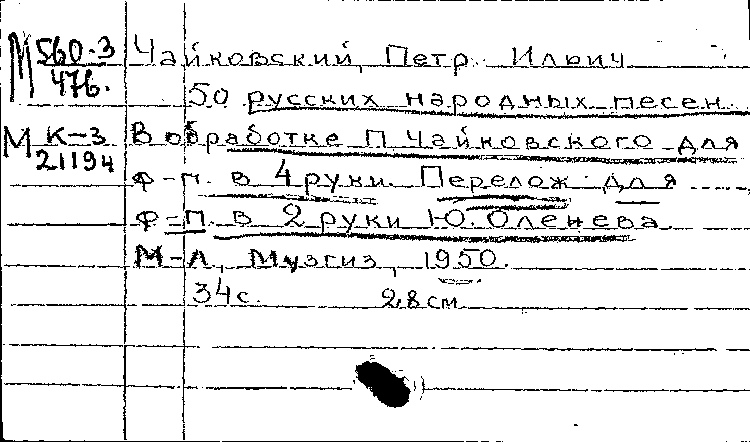 М 560-3 Чайковский, Петр Ильич
476.
50 русских народных песен
М К-3 В обработке П. Чайковского для
21194
ф-п. в 4 руки. Перелож. для
ф-п. в 2 руки Ю. Оленева
М-Л, Музгиз, 1950.
34с. 28см